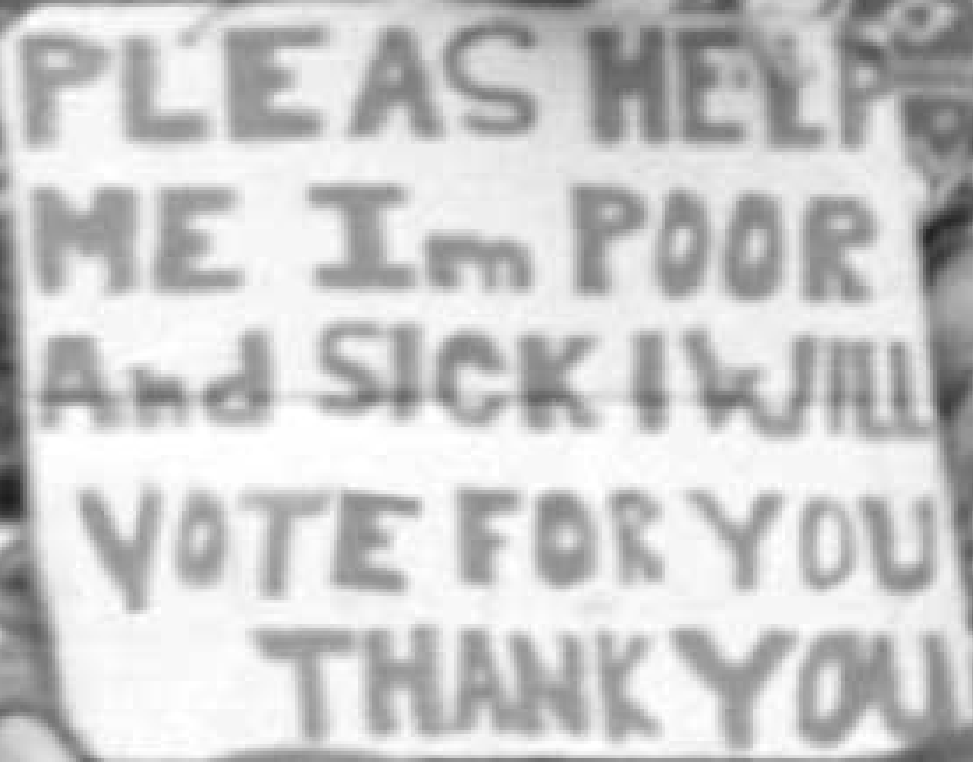 PLEAS HELP
ME Im POOR
And SICK I WILL
VOTE FOR YOU
THANK YOU